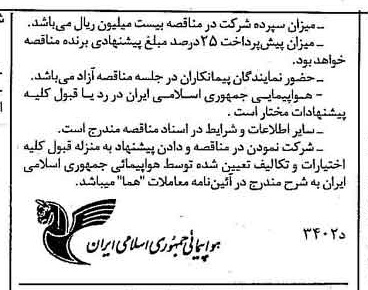 ـ میزان سپرده شرکت در مناقصه بیست میلیون ریال می‌باشد.
ـ میزان پیش‌پرداخت ۲۵درصد مبلغ پیشنهادی برنده مناقصه
خواهد بود.
ـ حضور نمایندگان پیمانکاران در جلسه مناقصه آزاد می‌باشد.
- هـواپیمـایی جمهوری اسـلامی ایران در رد یـا قبول کلیـه
پیشنهادات مختار است .
ـ سـایر اطلاعات و شرایط در اسناد مناقصه مندرج است.
ـ شرکت نمودن در مناقصه و دادن پیشنهاد به منزله قبول کلیه
اختیارات و تکالیف تعیین شده توسط هواپیمائی جمهوری اسلامی
ایران به شرح مندرج در آئین‌نامه معاملات "هما" میباشد.
د۳۴۰۲
هواپیمائی جمهوری اسلامی ایران